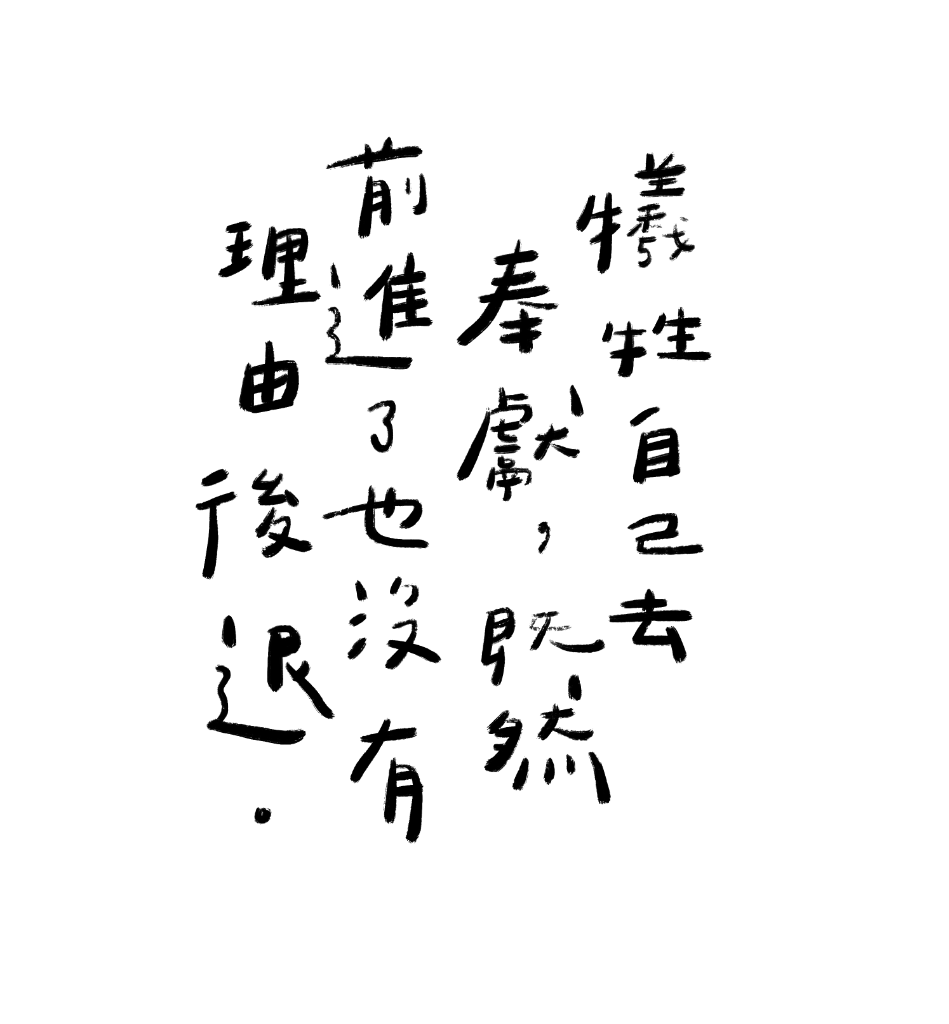 犧牲自己去
奉獻，既然
前進了也沒有
理由後退。